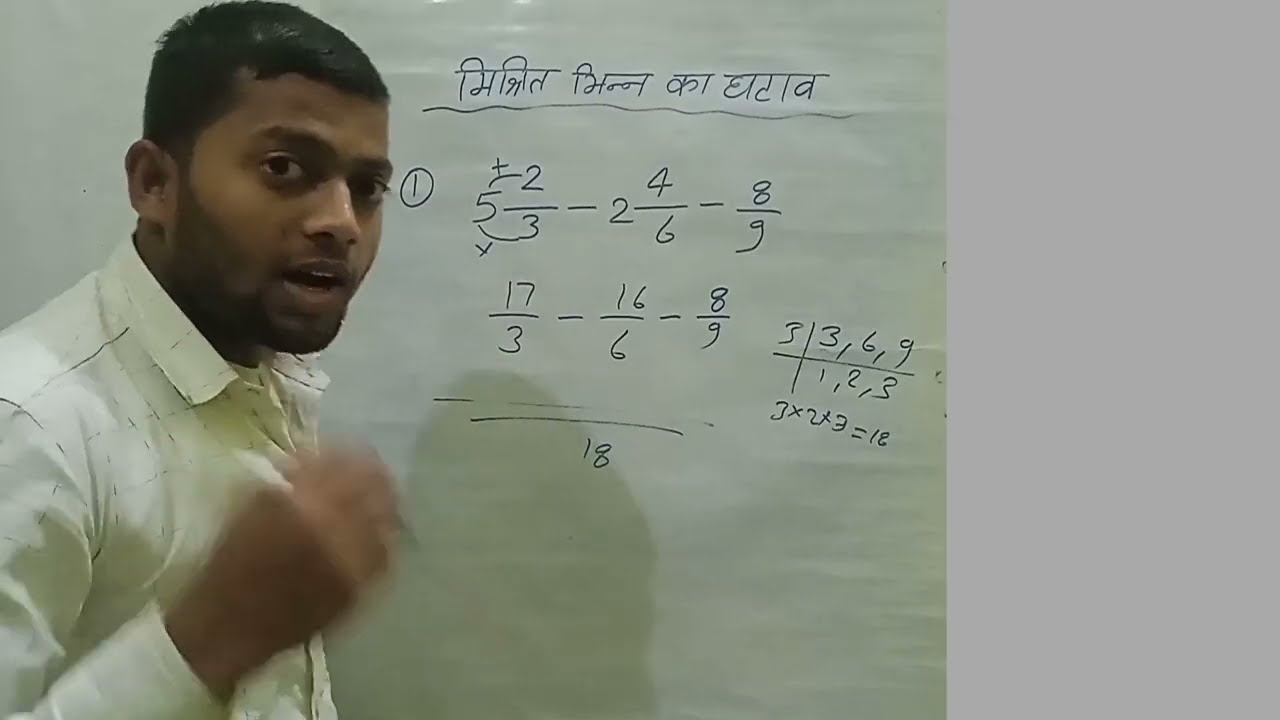 मिश्रित भिन्न का घटाव
① 5 2/3 − 2 4/6 − 8/9
+
×
17/3 − 16/6 − 8/9
3 | 3, 6, 9
1, 2, 3
3×2×3=18
18